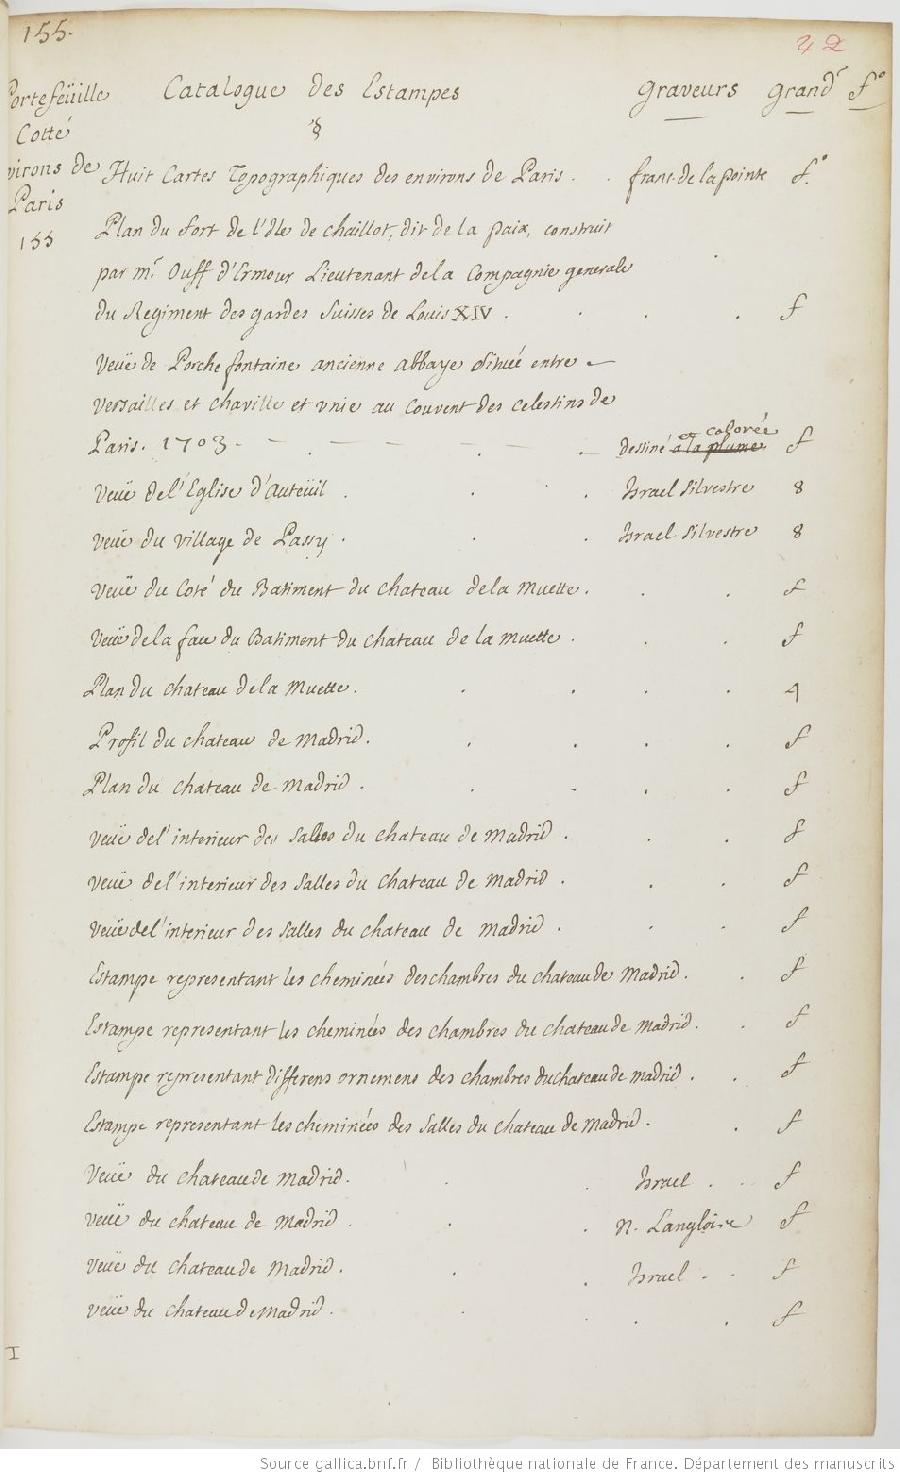 155.
42
Portefeüille Catalogue des Estampes graveurs grandr fo
Cotté §
Environs de Huit Cartes Topographiques des environs de Paris . . franc. de la pointe fo.
Paris
155 Plan du fort de l'Isle de chaillot, dit de la paix, construit
par mr. Ouff d'Ermeur Lieutenant de la Compagnie generale
du Regiment des gardes suisses de Louis XIV . f
Veüe de Porchefontaine ancienne abbaye située entre
versailles et chaville et vnie au couvent des celestins de
et colorée
Paris. 1703 - dessiné a la plume f
Veüe de l'Eglise d'Auteüil . Israel silvestre 8
Veüe du village de Passy . Israel silvestre 8
Veüe du Coté du Batiment du chateau de la Muette . f
Veüe de la face du Batiment du chateau de la muette . f
Plan du chateau de la muette . 4
Profil du chateau de madrid . f
Plan du chateau de madrid . f
Veüe de l'interieur des salles du chateau de Madrid . f
Veüe de l'interieur des salles du chateau de madrid . f
Veüe de l'interieur des salles du chateau de madrid . f
Estampe representant les cheminées des chambres du chateau de Madrid . f
Estampe representant les cheminées des chambres du chateau de Madrid . f
Estampe representant differens ornemens des chambres du chateau de madrid . f
Estampe representant les cheminées des salles du chateau de Madrid . f
Veüe du chateau de madrid . Israel . f
Veüe du chateau de Madrid . N. Langlois f
Veüe du chateau de Madrid . Israel . f
Veüe du chateau de Madrid . f
I
Source gallica.bnf.fr / Bibliothèque nationale de France. Département des manuscrits